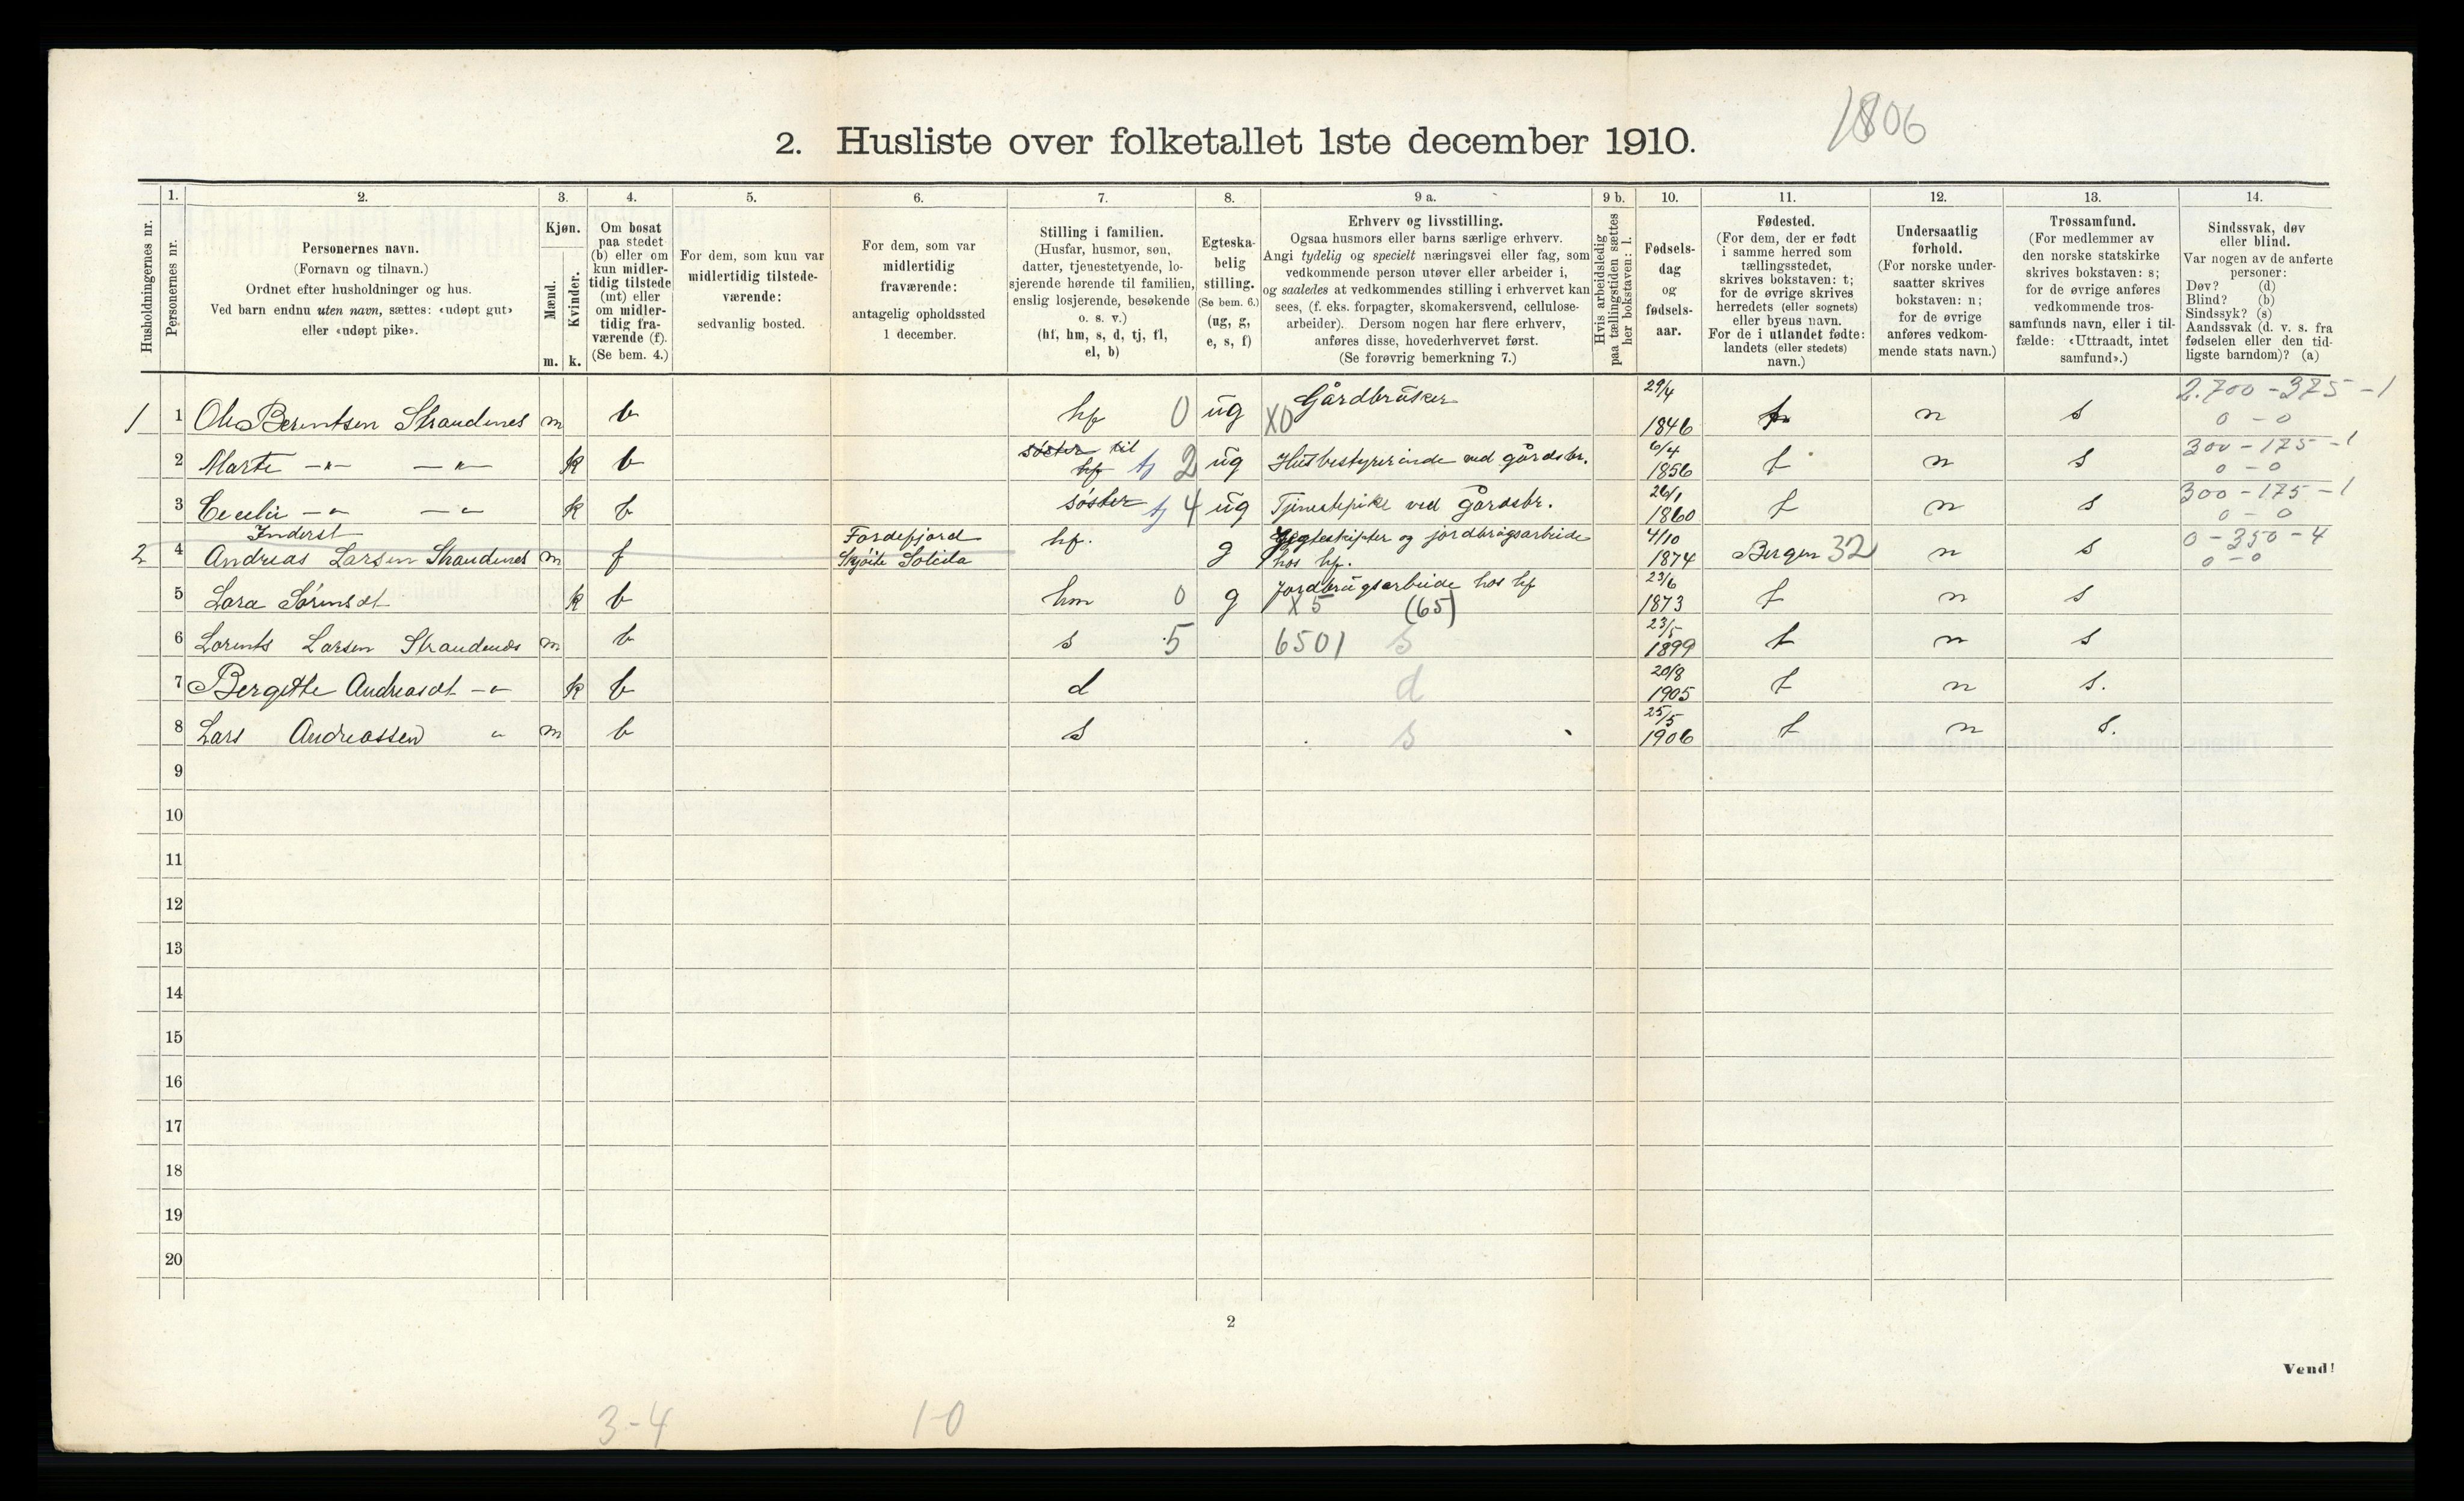 1806
2. Husliste over folketallet 1ste december 1910.
Husholdningernes nr.
1. Personernes nr.
2. Personernes navn. (Fornavn og tilnavn.) Ordnet efter husholdninger og hus. Ved barn endnu uten navn, sættes: «udøpt gut» eller «udøpt pike».
3. Kjøn. Mænd. m. Kvinder. k.
4. Om bosat paa stedet (b) eller om kun midlertidig tilstede (mt) eller om midlertidig fraværende (f). (Se bem. 4.)
5. For dem, som kun var midlertidig tilstedeværende: sedvanlig bosted.
6. For dem, som var midlertidig fraværende: antagelig opholdssted 1 december.
7. Stilling i familien. (Husfar, husmor, søn, datter, tjenestetyende, losjerende hørende til familien, enslig losjerende, besøkende o. s. v.) (hf, hm, s, d, tj, fl, el, b)
8. Egteskabelig stilling. (Se bem. 6.) (ug, g, e, s, f)
9 a. Erhverv og livsstilling. Ogsaa husmors eller barns særlige erhverv. Angi tydelig og specielt næringsvei eller fag, som vedkommende person utøver eller arbeider i, og saaledes at vedkommendes stilling i erhvervet kan sees, (f. eks. forpagter, skomakersvend, cellulosearbeider). Dersom nogen har flere erhverv, anføres disse, hovederhvervet først. (Se forøvrig bemerkning 7.)
9 b. Hvis arbeidsledig paa tællingstiden sættes her bokstaven: l.
10. Fødselsdag og fødselsaar.
11. Fødested. (For dem, der er født i samme herred som tællingsstedet, skrives bokstaven: t; for de øvrige skrives herredets (eller sognets) eller byens navn. For de i utlandet fødte: landets (eller stedets) navn.)
12. Undersaatlig forhold. (For norske undersaatter skrives bokstaven: n; for de øvrige anføres vedkommende stats navn.)
13. Trossamfund. (For medlemmer av den norske statskirke skrives bokstaven: s; for de øvrige anføres vedkommende trossamfunds navn, eller i tilfælde: «Uttraadt, intet samfund».)
14. Sindssvak, døv eller blind. Var nogen av de anførte personer: Døv? (d) Blind? (b) Sindssyk? (s) Aandssvak (d. v. s. fra fødselen eller den tidligste barndom)? (a)
1 1 Ole Berentsen Strandenes m b hf 0 ug X0 Gårdbruker 29/4 1846 t n s 2.700-375-1 0-0
2 Marte -"- -"- k b søster til hf tj 2 ug Husbestyrerinde ved gårdsbr. 6/4 1856 t n s 300-175-1 0-0
3 Cecelie -"- -"- k b søster tj 4 ug Tjenestepike ved Gårdsbr. 26/1 1860 t n s 300-175-1 0-0
Inderst
2 4 Andreas Larsen Strandenes m f Førdefjord Skjöite Solida hf. g Jægteskipter og jordbrugsarbeide hos hf. 4/10 1874 Bergen 32 n s 0-350-4 0-0
5 Lara Sørensdt k b hm 0 g Jordbrugsarbeide hos hf X5 (65) 23/6 1873 t n s
6 Lorents Larsen Strandenes m b s 5 6501 s 23/5 1899 t n s
7 Bergitte Andreasdt -"- k b d d 20/8 1905 t n s.
8 Lars Andreassen " m b s s 25/5 1906 t n s.
9
10
11
12
13
14
15
16
17
18
19
20
2
Vend!
3-4 1-0